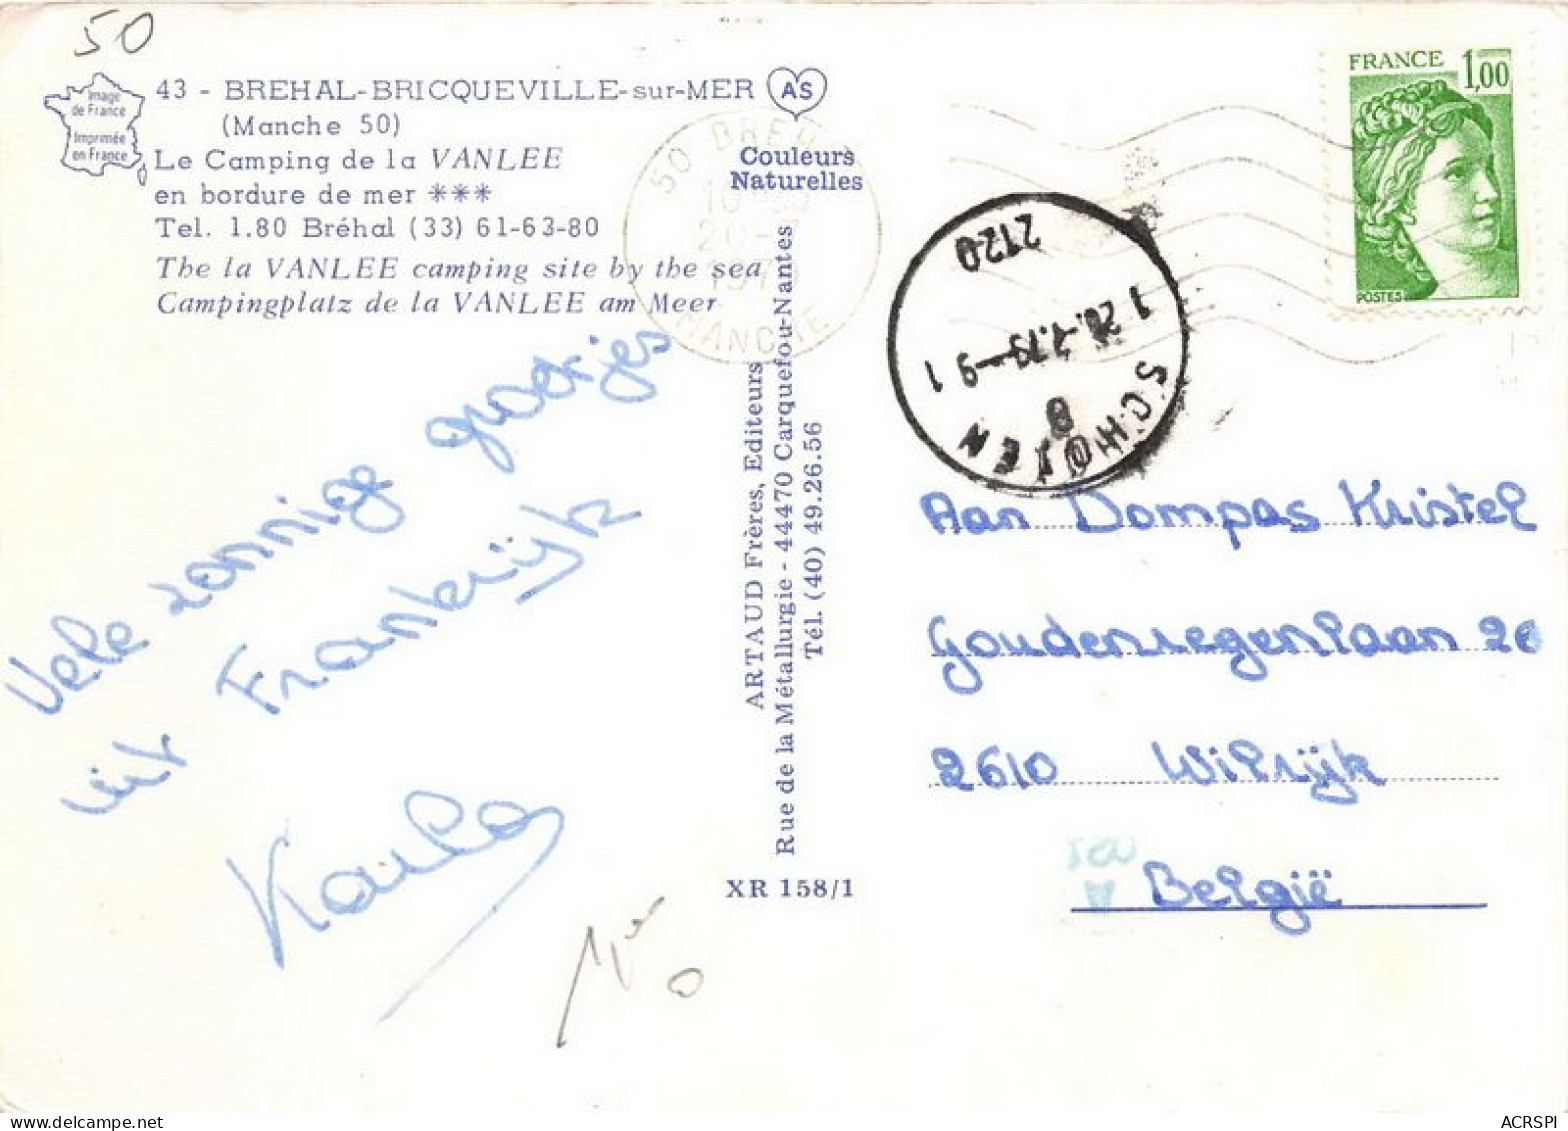 50
Image
de France
Imprimée
en France
43 - BREHAL-BRICQUEVILLE-sur-MER
(Manche 50)
Le Camping de la VANLEE
en bordure de mer ***
Tel. 1.80 Bréhal (33) 61-63-80
The la VANLEE camping site by the sea
Campingplatz de la VANLEE am Meer
AS
Couleurs
Naturelles
50 BREH
MANCHE
ARTAUD Frères, Editeurs
Rue de la Métallurgie - 44470 Carquefou-Nantes
Tél. (40) 49.26.56
XR 158/1
2120
SCHOTEN
8
FRANCE 1,00
POSTES
Vele zonnige groetjes
uit Frankrijk
Karla
Aan Dompas Kristel
Goudenregenlaan
2610 Wilrijk
België
ACRSPI